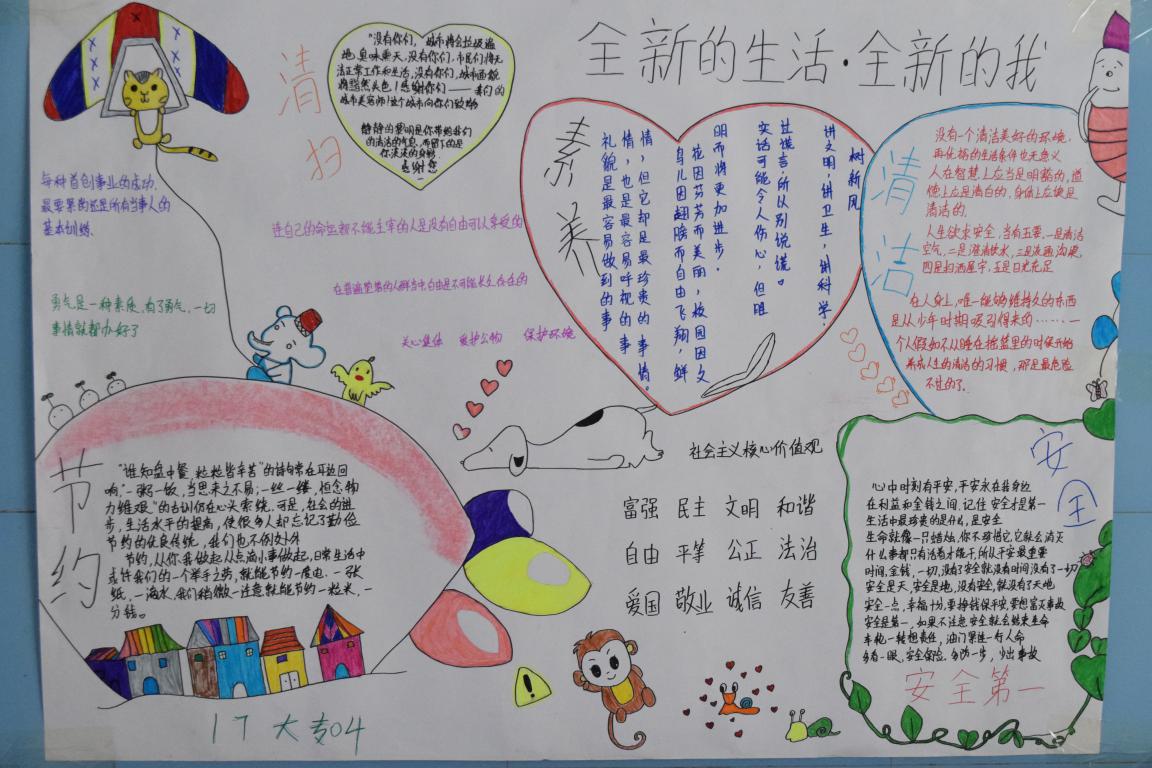 全新的生活·全新的我
清扫
"没有你们，城市将会垃圾遍
地，臭味熏天，没有你们，市民们将无
法正常工作和生活，没有你们，城市面貌
将黯然失色！感谢你们——我们的
城市美容师！这个城市向你们致敬
静静的黎明是你带给我们
的清洁的气息，而留下的是
你淡淡的身影
感谢您
每种首创事业的成功，
最要紧的还是所有当事人的
基本训练.
连自己的命运都不能主宰的人是没有自由可以享受的
勇气是一种素质，有了勇气，一切
事情就都办好了
关心集体 爱护公物 保护环境
素养
树新风
讲文明，讲卫生，讲科学，
过谎言，所以别说谎。
实话可能令人伤心，但胜
明而将更加进步.
花因芬芳而美丽，校园因文
鸟儿因翅膀而自由飞翔，鲜
情，但它却是最珍贵的事情。
情，也是最容易呼视的事
礼貌是最容易做到的事
清洁
没有一个清洁美好的环境，
再优裕的生活条件也无意义
人在智慧上应当是明豁的，道
德上应是清白的，身体上应该是
清洁的.
人生欲求安全，当有五要，一是清洁
空气，二是澄清饮水，三是流通沟渠，
四是扫洒屋宇，五是日光充足
在人身上，唯一能够维持久的东西
是从少年时期吸引得来的……一
个人假如不从睡在摇篮里的时候开始
养成人生的清洁的习惯，那是最危险
不过的了.
节约
"谁知盘中餐，粒粒皆辛苦"的诗句常在耳边回
响，"一粥一饭，当思来之不易；一丝一缕，恒念物
力维艰"的古训仍在心头萦绕.可是，社会的进
步，生活水平的提高，使很多人却忘记了勤俭
节约的优良传统，我们也不例外外
节约，从你我做起从点滴小事做起，日常生活中
或许我们的一个举手之劳，就能节约一度电，一张
纸，一滴水，我们稍微一注意就能节约一粒米，一
分钱。
17大专04
社会主义核心价值观
富强 民主 文明 和谐
自由 平等 公正 法治
爱国 敬业 诚信 友善
安全
心中时刻有平安，平安永在我身边
在利益和金钱之间，记住 安全才是第一
生活中最珍贵的是什么，是安全
生命就像一只蜡烛，你不珍惜它，它就会消灭
什么事都只有活着才能干，所以平安最重要
时间，金钱，一切，没有了安全就没有时间没有了一切
安全是天，安全是地，没有安全，就没有了天地
安全一点，幸福十分，要挣钱保平安，要想富灭事故
安全是第一，如果不注意安全就会结束生命
车轮一转想责任，油门紧连一行人命
多看一眼，安全保险，多防一步，少出事故
安全第一